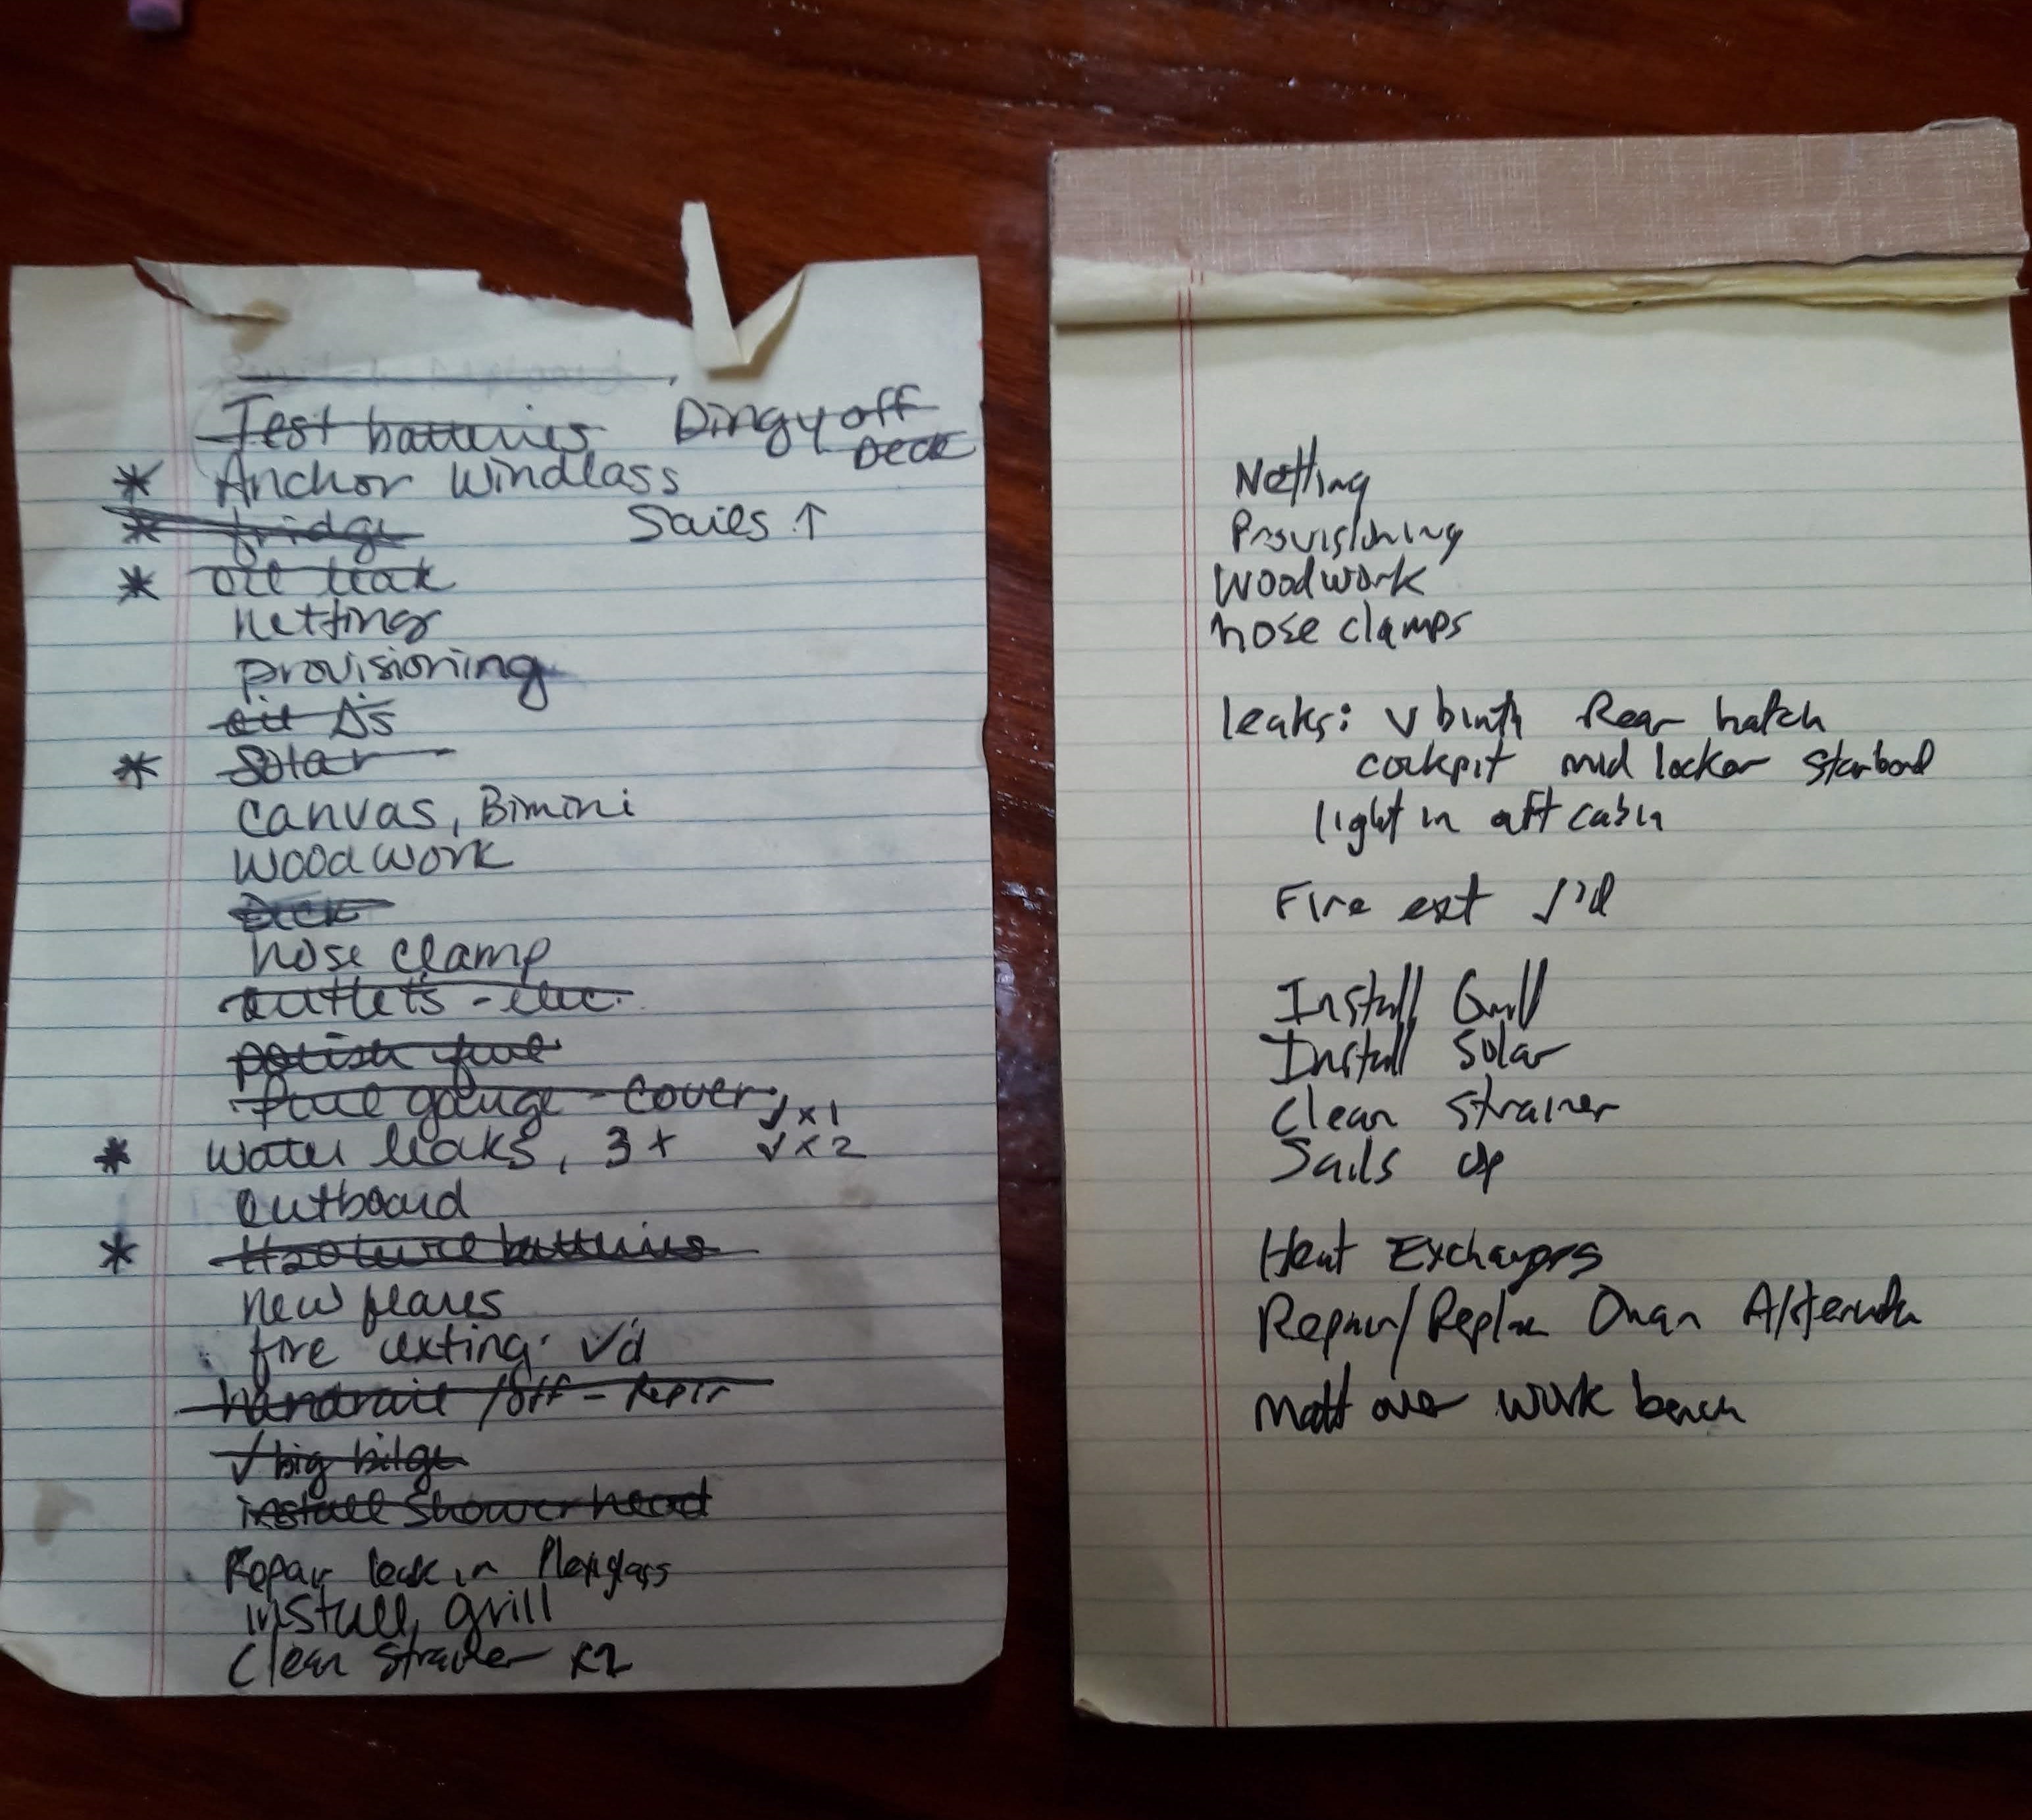 Test batteries Dingy off
Deck
* Anchor Windlass
* fridge Sails ↑
* oil leak
netting
provisioning
oil Δs
* Solar
canvas, Bimini
woodwork
Deck
hose clamp
outlets - elec.
polish fuel
fuel gauge - cover
√ x 1
* water leaks, 3x √ x 2
outboard
* H2O batteries
new flares
fire exting. √'d
handrail / off - Repir
√ big bilge
install shower head
Repair leak in Plexiglass
install grill
Clean Strainer x2
Netting
Provisioning
Woodwork
hose clamps
leaks: v birth Rear hatch
cockpit mid locker Starbord
light in aft cabin
Fire ext √'d
Install Grill
Install Solar
Clean strainer
Sails up
Heat Exchangers
Repair/Replace Onan Alternator
Matt over work bench